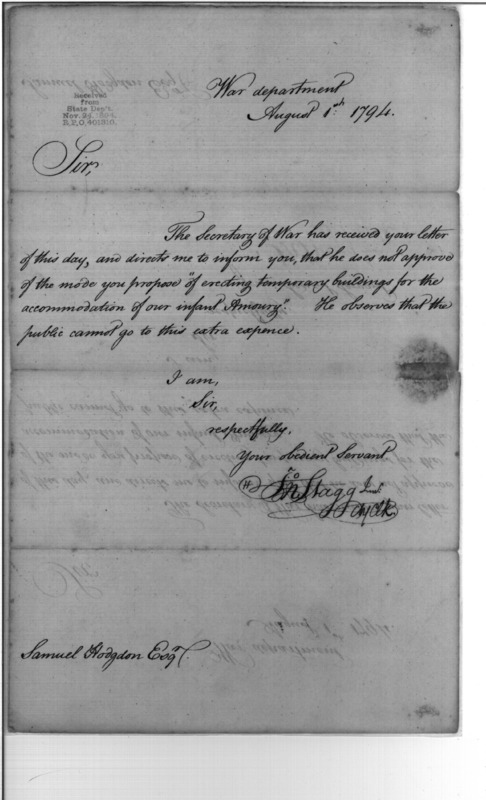 War department
August 1st 1794.
Received
from
State Dep't.
Nov. 24, 1894,
R.P.O. 401310.
Sir,
The Secretary of War has received your letter
of this day, and directs me to inform you, that he does not approve
of the mode you propose "of erecting temporary buildings for the
accommodation of our infant Amoury". He observes that the
public cannot go to this extra expence.
I am,
Sir,
respectfully,
Your obedient Servant
Jno Stagg Junr
Ch Clk
Samuel Hodgdon Esqr.